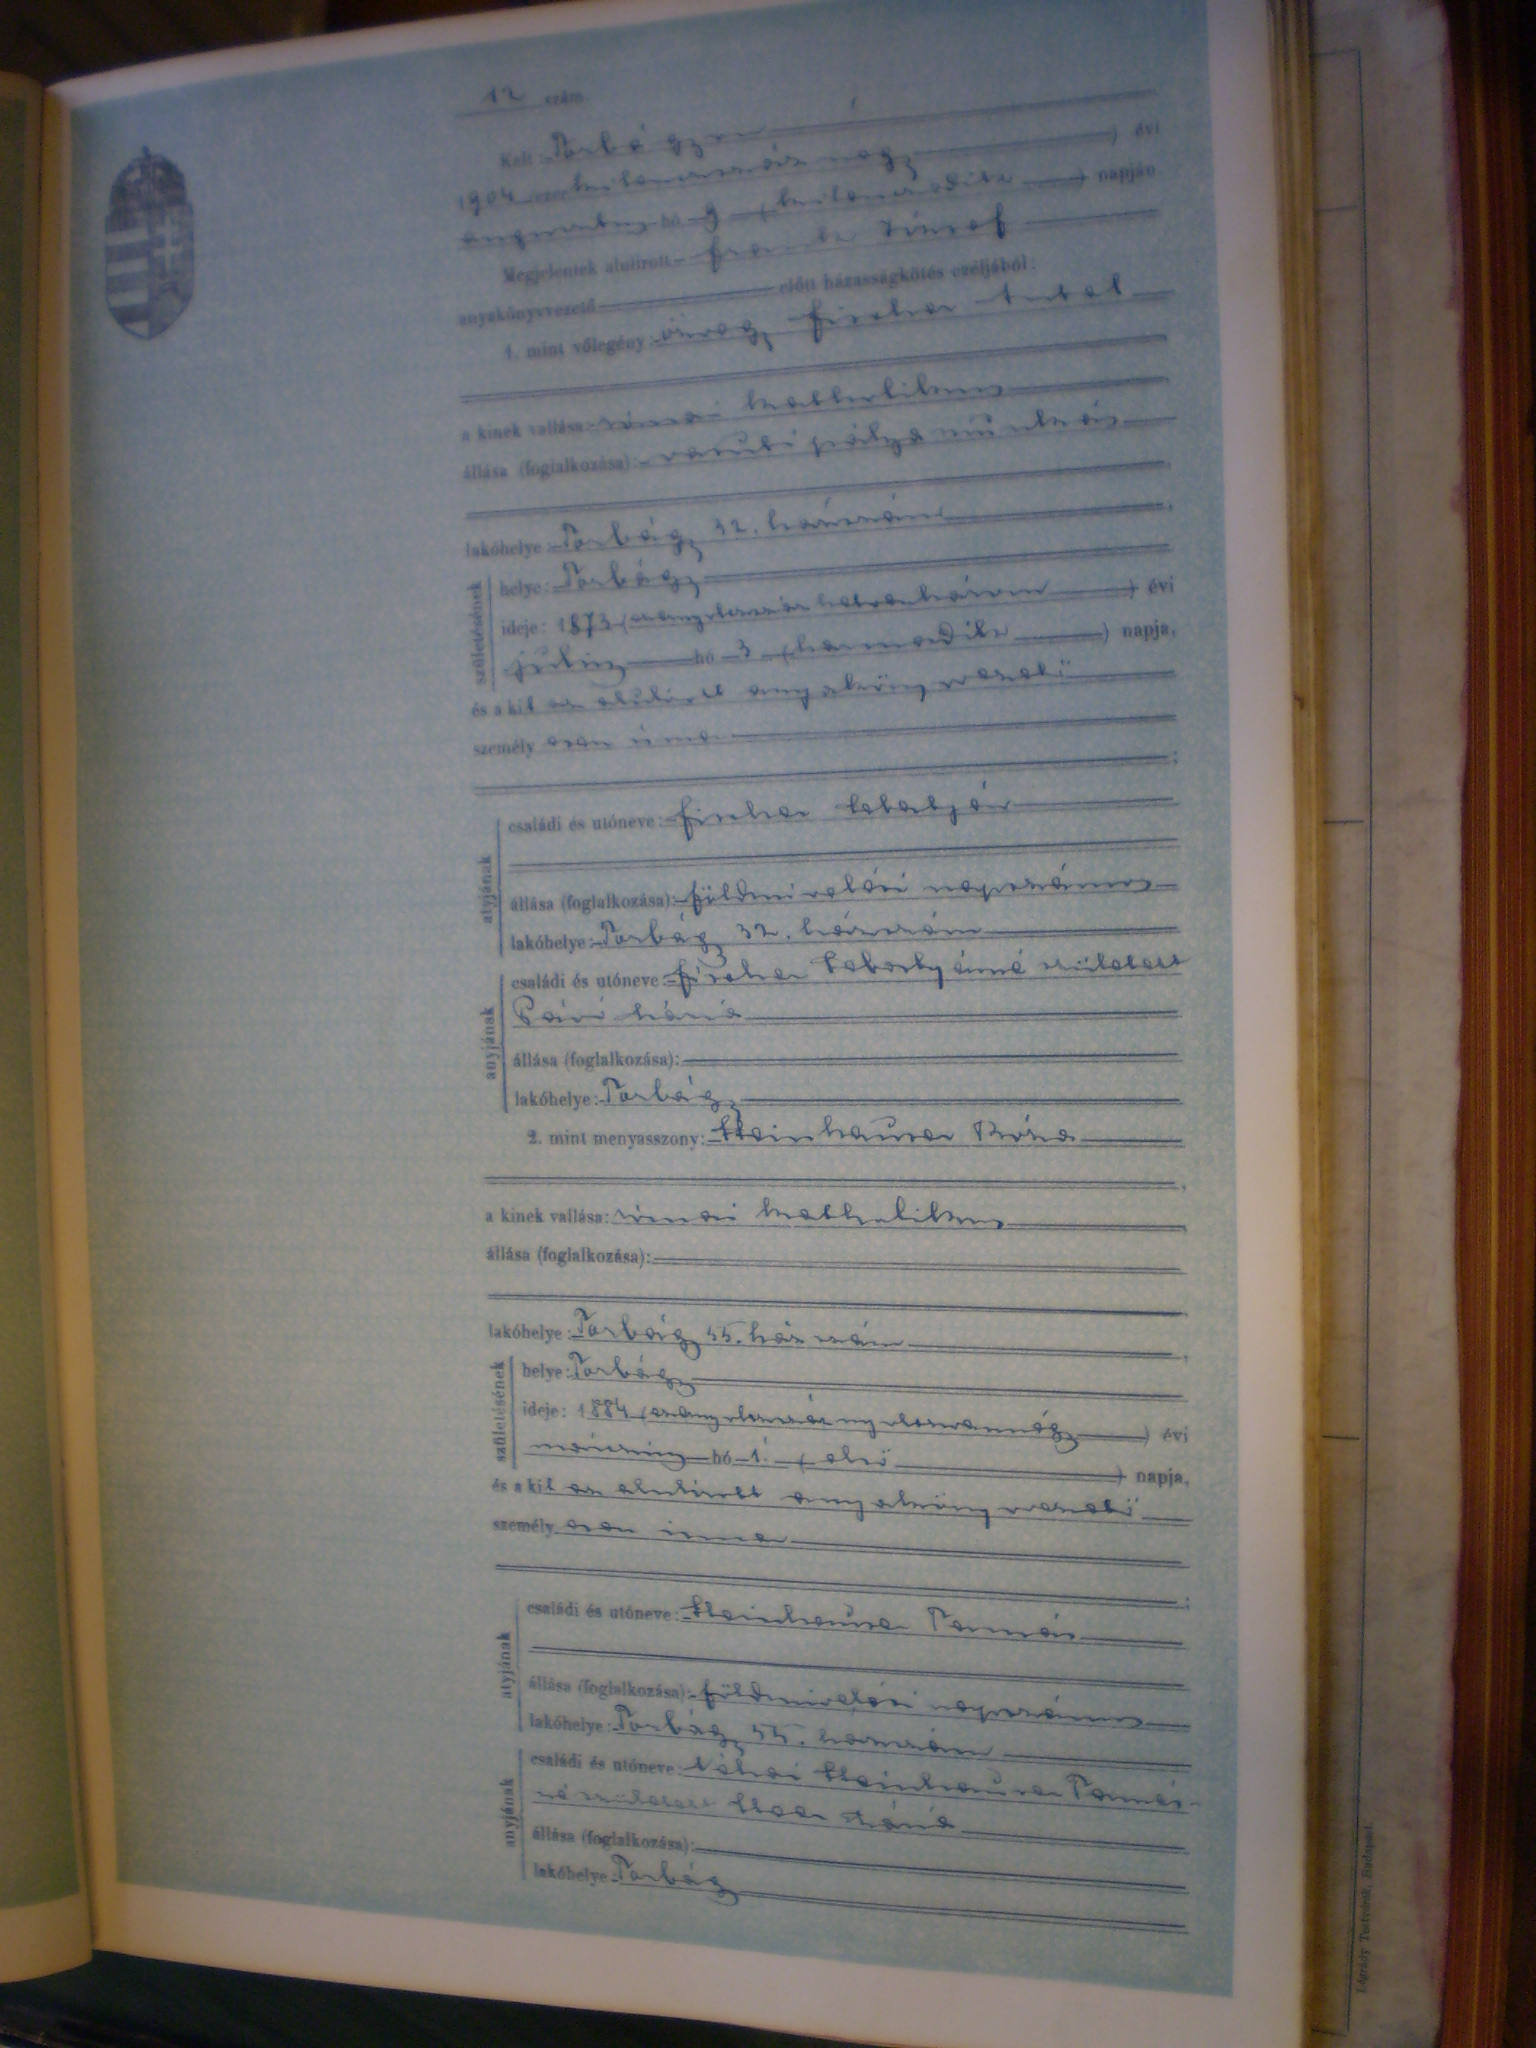 12 szám.
Kelt: Torbágyon
1904 ezerkilenczszáz négy ) évi
augusztus hó 9 (kilenczedik ) napján.
Megjelentek alulirott
anyakönyvvezető előtt házasságkötés czéljából:
1. mint vőlegény: özvegy Fischer Antal
a kinek vallása: római katholikus
állása (foglalkozása): vasuti pálya munkás
lakóhelye: Torbágy 32. házszám
születésének
helye: Torbágy
ideje: 1873 (ezernyolczszáz hetvenhárom ) évi
julius hó 3 (harmadik ) napja,
és a kit az alulirott anyakönyvvezető
személy esen ismer
atyjának
családi és utóneve: Fischer Sebestyén
állása (foglalkozása): földmivelési napszámos
lakóhelye: Torbágy 32. házszám
anyjának
családi és utóneve: Fischer Sebestyénné született
Mária
állása (foglalkozása):
lakóhelye: Torbágy
2. mint menyasszony: Steinhauser Róza
a kinek vallása: római katholikus
állása (foglalkozása):
lakóhelye: Torbágy 55. ház szám
születésének
helye: Torbágy
ideje: 1884 (ezernyolczszáz nyolczvannégy ) évi
márczius hó 1. ( első ) napja,
és a kit az alulirott anyakönyvvezető
személy esen ismer
atyjának
családi és utóneve: Steinhauser Tamás
állása (foglalkozása): földmivelési napszámos
lakóhelye: Torbágy 55. házszám
anyjának
családi és utóneve: Néhai Steinhauser Tamás-
né született Mária
állása (foglalkozása):
lakóhelye Torbágy
Légrády Testvérek, Budapest.